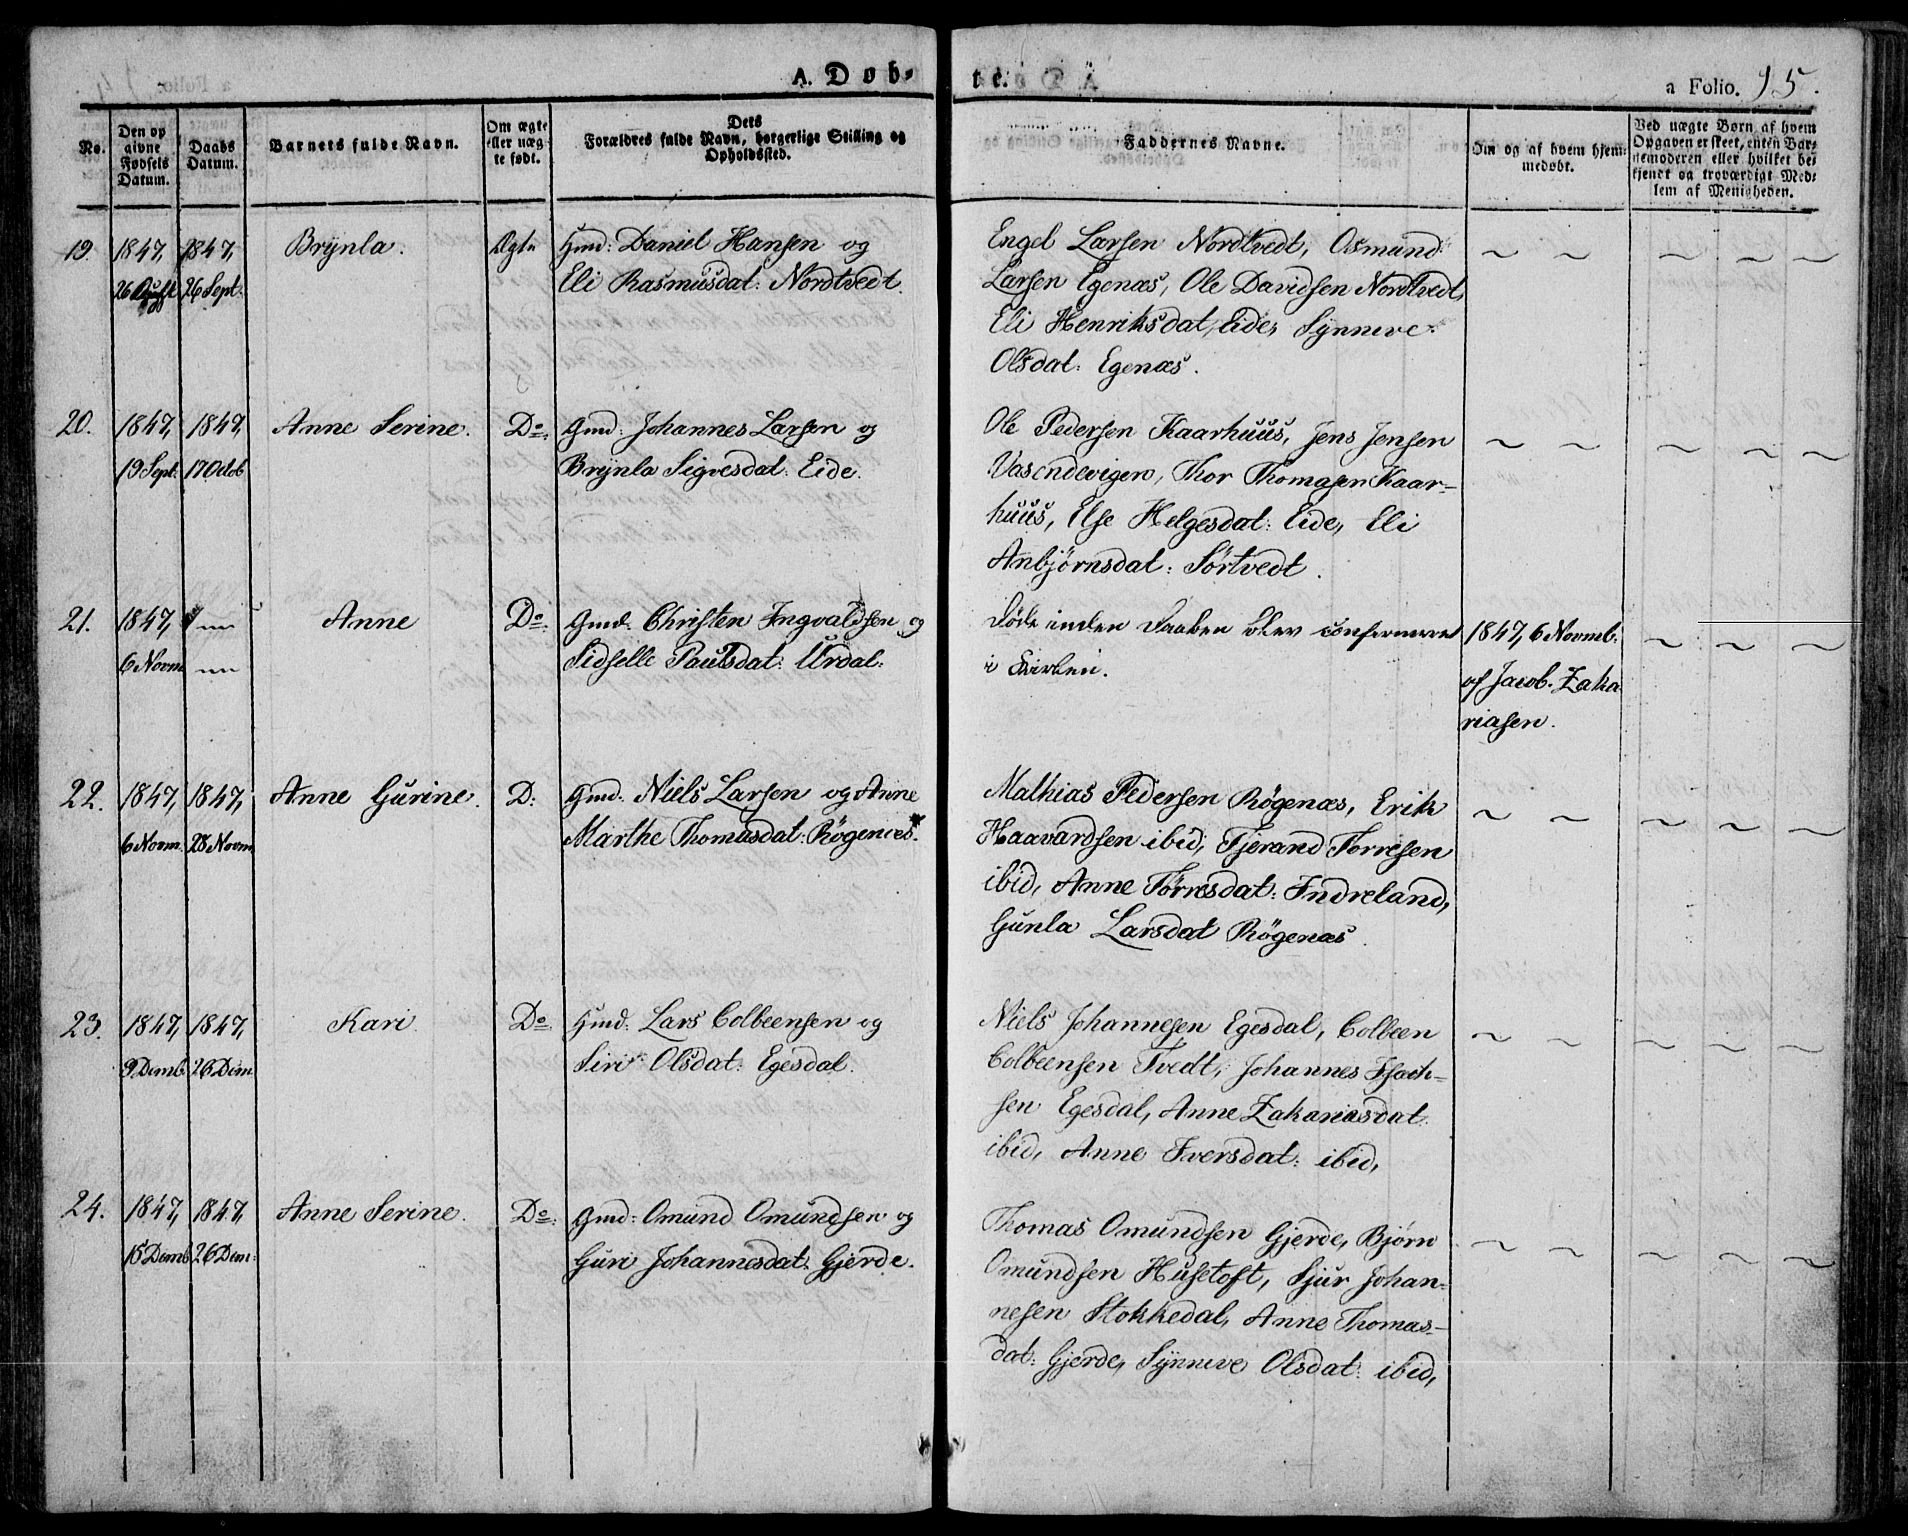 A. Døb-
te.
a Folio. 15.
No.
Den op
givne
Fødsels
Datum.
Daabs
Datum.
Barnets fulde Navn.
Om ægte
eller uæg-
te født.
Dets
Forældres fulde Navn, borgerlige Stilling og
Opholdssted.
Faddernes Navne.
Om og af hvem hjem-
medøbt.
Ved uægte Børn af hvem
Opgaven er skeet, enten Bar-
nemoderen eller hvilket be-
kjendt og troværdigt Med-
lem af Menigheden.
19. 1847, 1847, Brynla. Ægte Gmd: Daniel Hansen og
26 26 Sept: Eli Rasmusdat: Nordtvedt.
Engel Larsen Nordtvedt, Osmund
Larsen Egenæs, Ole Davidsen Nordtvedt,
Eli Henriksdat, Eide, Synneve
Olsdat: Egenæs.
20. 1847, 1847, Anne Serine. Do: Gmd: Johannes Larsen og
19 Sept: 17 Octob Brynla Sigvesdat: Eide.
Ole Pedersen Kaarhuus, Jens Jensen
Vasendevigen, Thor Thomasen Kaar-
huus, Else Helgesdat: Eide, Eli
Anbjørnsdat: Sørtvedt.
21. 1847, Anne Do: Gmd: Christen Ingvaldsen og
6 Novm Sidselle Paulsdat: Urdal:
Døde inden Daaben blev confirmeret
i Kirken.
1847, 6 Novmb:
af Jacob Zaka
riasen.
22. 1847, 1847, Anne Gurine. D: Gmd: Niels Larsen og Anne
6 Novm. 28 Novm. Marthe Thomasdat: Røgenæs.
Mathias Pedersen Røgenæs, Erik
Haavardsen ibid, Tjerand Torresen
ibid, Anne Tørresdat: Indreland,
Gunla Larsdat Røgenæs.
23. 1847, 1847, Kari Do: Gmd: Lars Colbeensen og
9 Demb. 26 Dem Siri Olsdat: Egesdal.
Niels Johannesen Egesdal, Colbeen
Colbeensen Tvedt, Johannes Isach-
sen Egesdal, Anne Zakariasdat
ibid, Anne Iversdat: ibid,
24. 1847, 1847, Anne Serine. Do: Gmd: Omund Omundsen og
15 Demb 26 Dem: Guri Johannesdat: Gjerde.
Thomas Omundsen Gjerde, Bjørn
Omundsen Husetoft, Sjur Johan-
nesen Stokkedal, Anne Thomas-
dat: Gjerde, Synneve Olsdat: ibid,